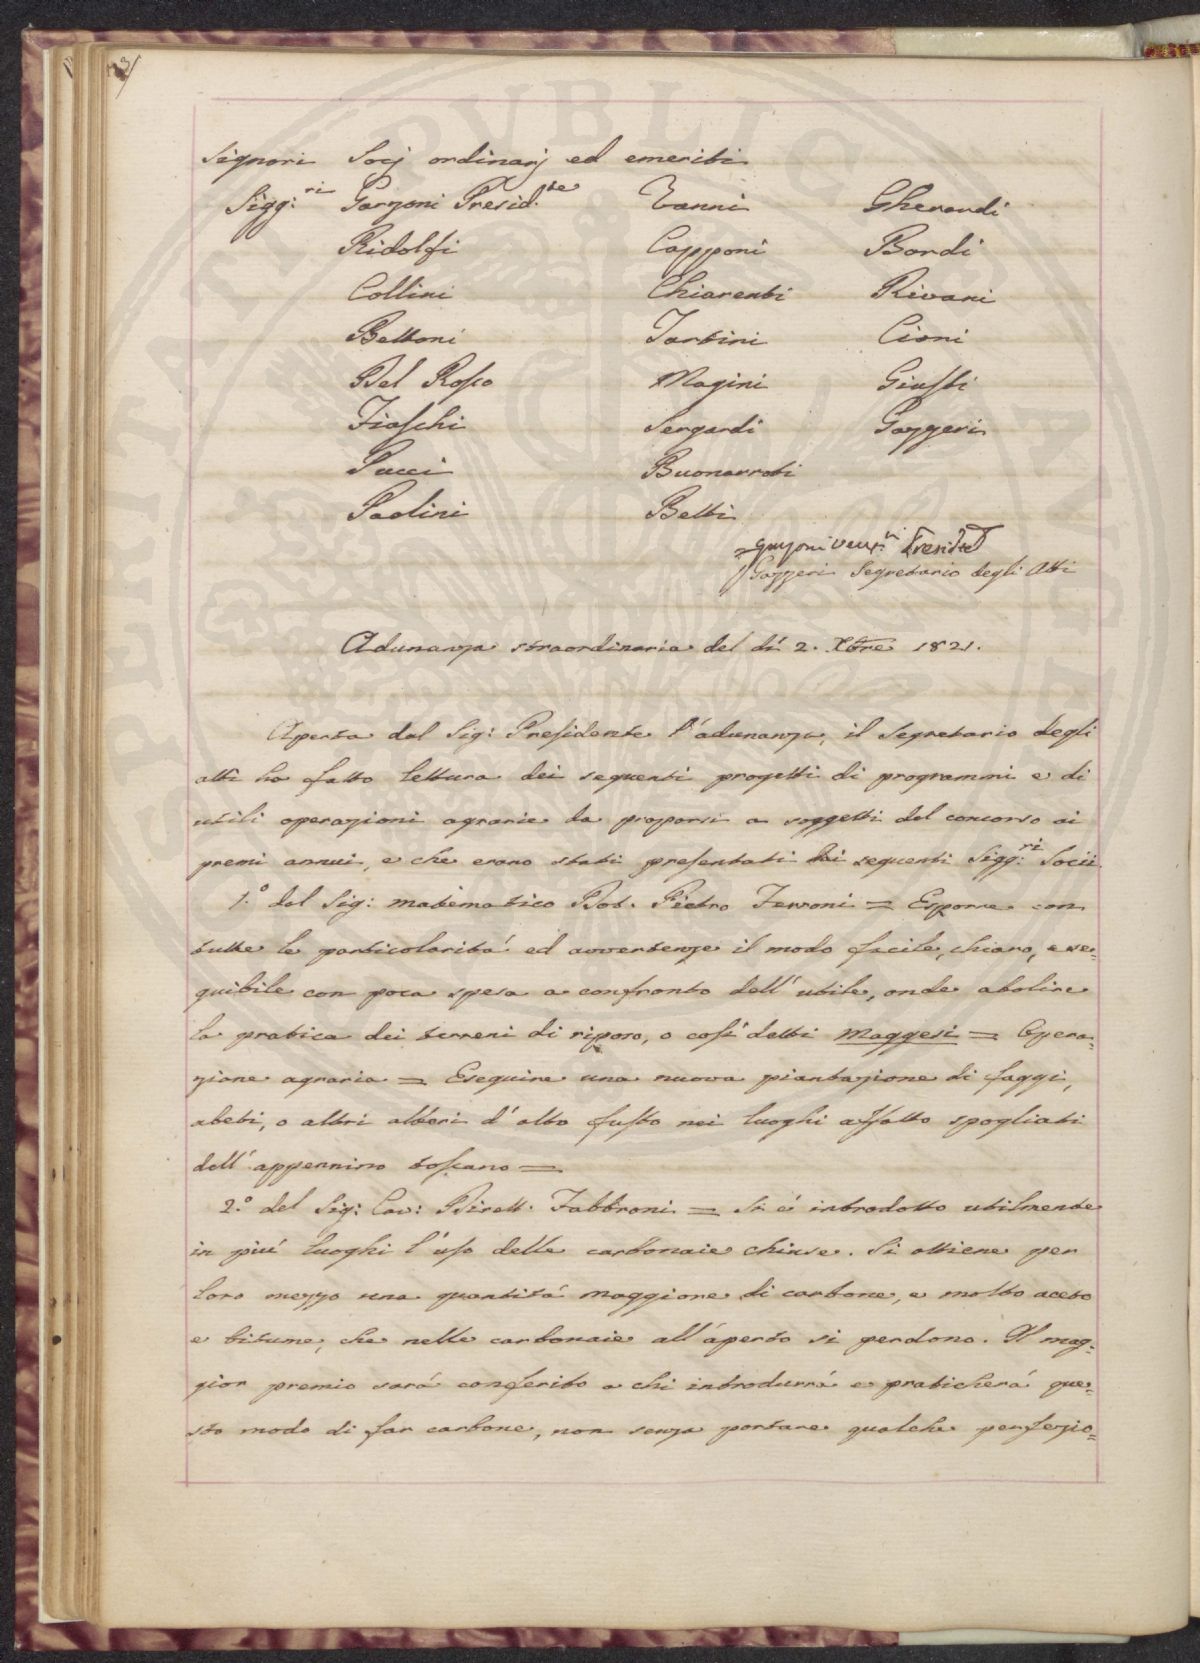 Signori Socj ordinarj ed emeriti
Sigg:ri Garzoni Presid:te Vanni Gherardi
Ridolfi Capponi Bardi
Collini Chiarenti Rivani
Bettoni Tartini Cioni
Del Rosso Magini Giusti
Fiaschi Sergardi Gazzeri
Pucci Buonarroti
Paolini Betti
Garzoni Presid
Gazzeri Segretario degli Atti
Adunanza straordinaria del dì 2. Xbre 1821.
Aperta dal Sig: Presidente l'adunanza, il segretario degli
atti ha fatto lettura dei seguenti progetti di programmi e di
utili operazioni agrarie da proporsi a soggetti del concorso ai
premi annui, e che erano stati presentati dai seguenti Sigg:ri Socii
1.° dal Sig: matematico Dot. Pietro Ferroni = Esporre con
tutte le particolarità ed avvertenze il modo facile, chiaro, ese=
quibile con poca spesa a confronto dell'utile, onde abolire
la pratica dei terreni di riposo, o così detti Maggesi = Opera=
zione agraria = Eseguire una nuova piantazione di faggi,
abeti, o altri alberi d'alto fusto nei luoghi affatto spogliati
dell'appennino toscano =
2.° del Sig: Cav: Dirett. Fabbroni = Si é introdotto utilmente
in piú luoghi l'uso delle carbonaie chiuse. Si ottiene per
loro mezzo una quantitá maggiore di carbone, e molto aceto
e bitume, che nelle carbonaie all'aperto si perdono. Il mag=
gior premio sará conferito a chi introdurrá e praticherá que=
sto modo di far carbone, non senza portare qualche perfezio=